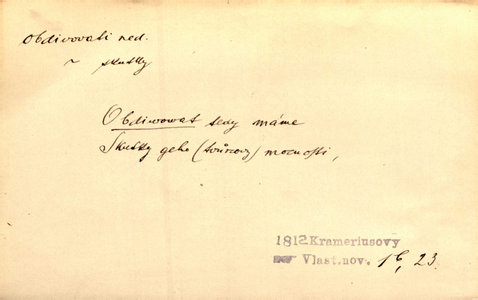 Obdivovati ned.
~ skutky
Obdiwowat tedy máme
Skutky geho (twůrcowy) mocnosti,
1812 Krameriusovy
Vlast.nov. 16, 23.